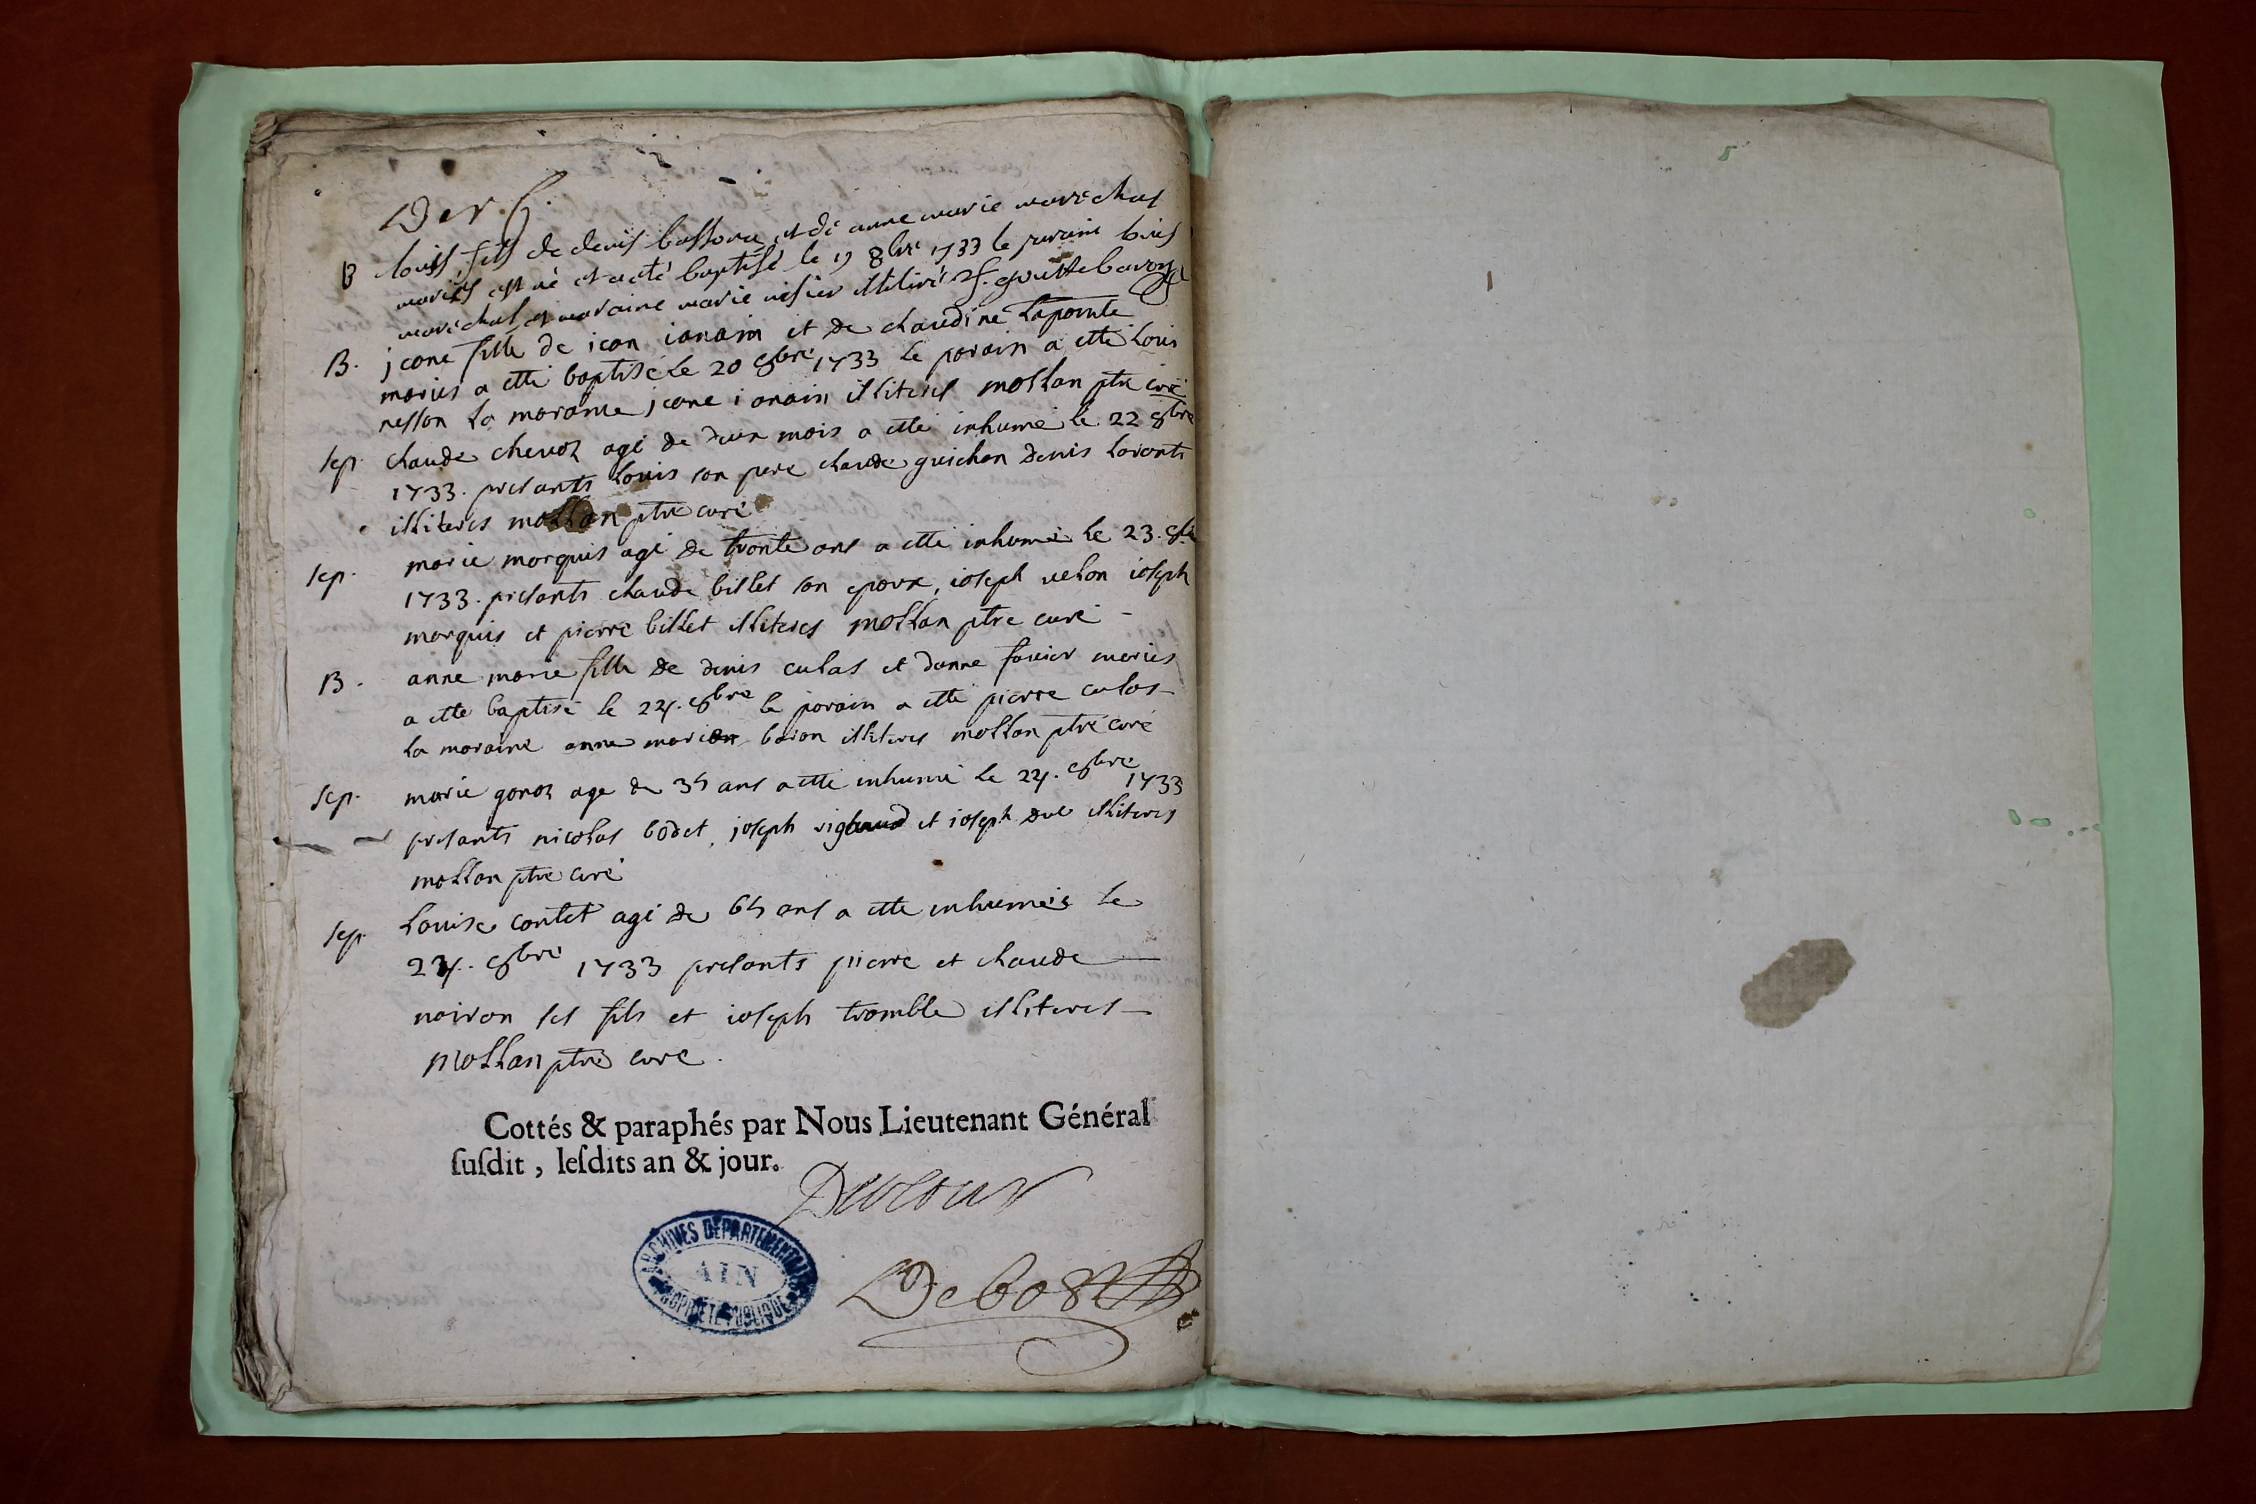 Der. f.
B louis fils de denis bussonu et de anne marie maréchal
mariés est né et a eté baptisé le 19 8bre 1733 le parain louis
maréchal et maraine marie nisier illitiré f. goutte baron
B. jeane fille de jean ianain et de claudine Lapointe
mariés a etté baptisé le 20 8bre 1733 le parain a etté Louis
nesson la maraine jeane ianain illiterés mollan ptre curé
sep. claude chevoz agé de deux mois a etté inhumé le 22 8bre
1733. presants Louis son pere claude guichon denis
illiterés mollan ptre curé
sep. marie marquis agé de trante ans a etté inhumé le 23. 8bre
1733. presants claude billet son epoux, ioseph velon ioseph
marquis et pierre billet illiterés mollan ptre curé
B. anne marie fille de denis culas et danne favier mariés
a etté baptisé le 24. 8bre le parain a etté pierre culas
la maraine anne marie baron illiterés mollan ptre curé
sep. marie gonoz agé de 35 ans a etté inhumé le 24. 8bre 1733
presants nicolas bodet, joseph rigaud et ioseph illiterés
mollan ptre curé
sep. Louise contet agé de 65 ans a etté inhumée le
24. 8bre 1733 presants pierre et claude
noiron ses fils et ioseph tromble illiterés
Mollan ptre curé.
Cottés & paraphés par Nous Lieutenant Général
ſuſdit, leſdits an & jour.
Debost
ARCHIVES DÉPARTEMENTALES
AIN
PROPRIÉTÉ PUBLIQUE